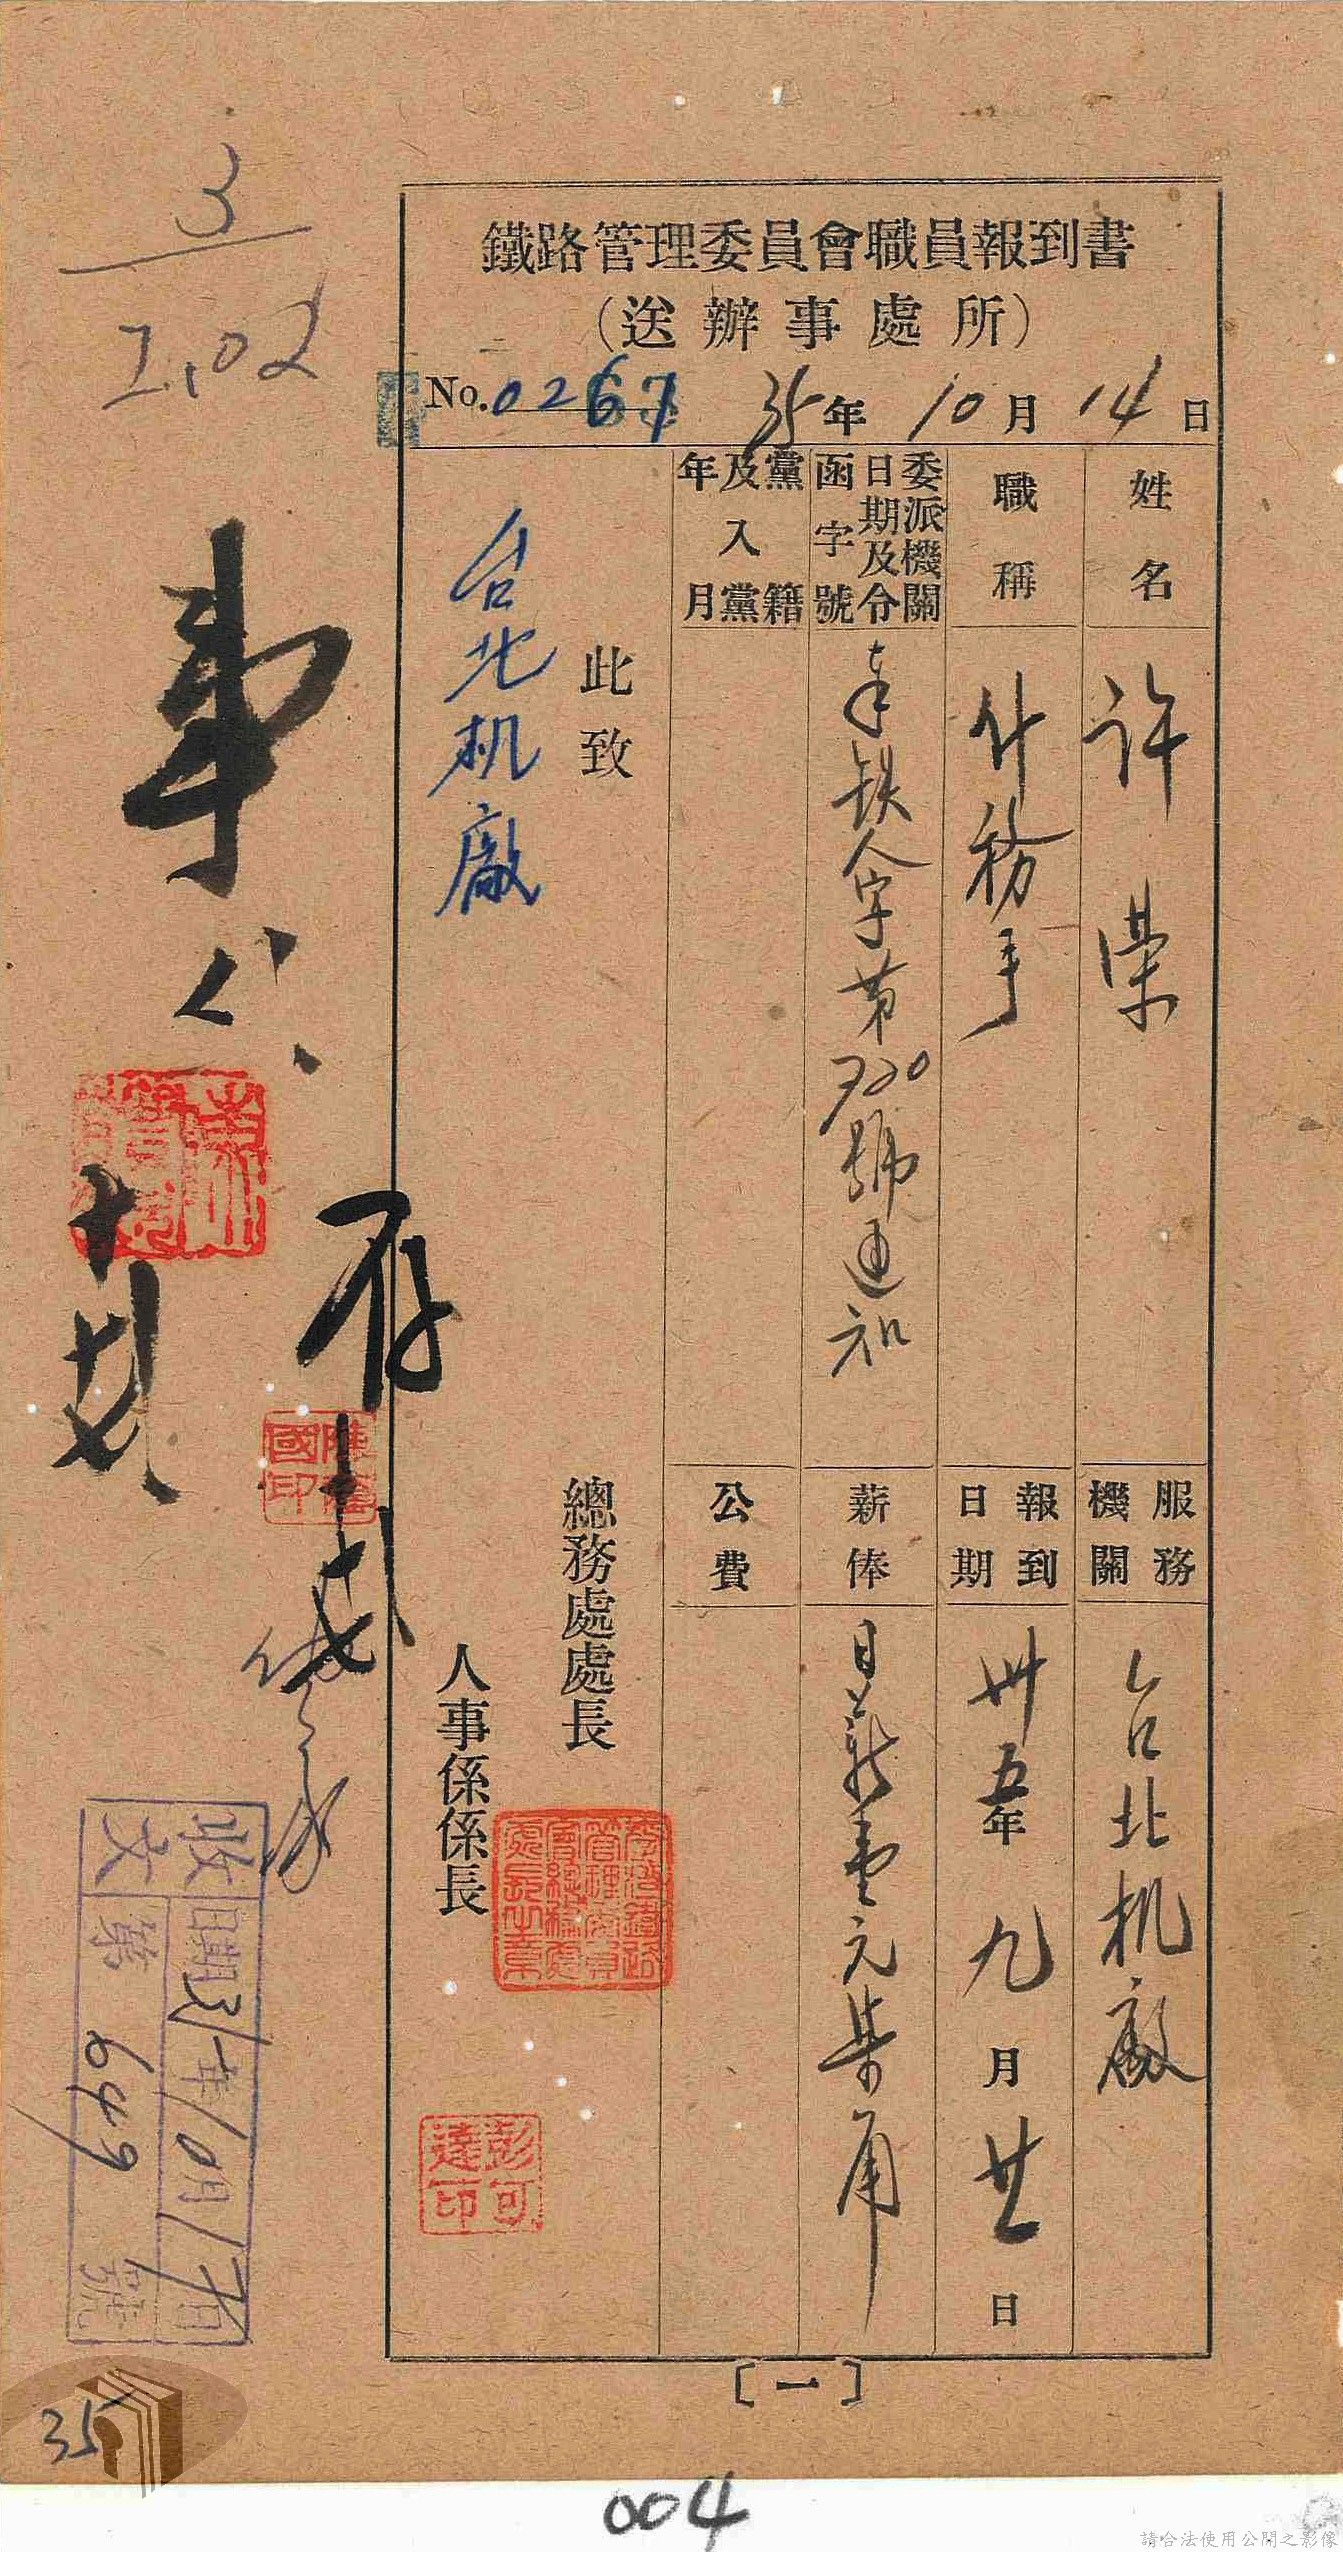 鐵路管理委員會職員報到書
（送辦事處所）
No. 0267
35年10月14日
姓名
許榮
服務機關
台北机廠
職稱
什務手
報到日期
卅五年九月廿日
委派機關日期及分函字號
奉鉄人字第720號通知
薪俸
日薪壹元柒角
黨籍及入黨年月
公費
此致
台北机廠
總務處處長
人事係係長
彭可達印
存
國印
3
1,02
收文
日期 35年10月17日
第 649 號
[一]
35
004
請合法使用公開之影像